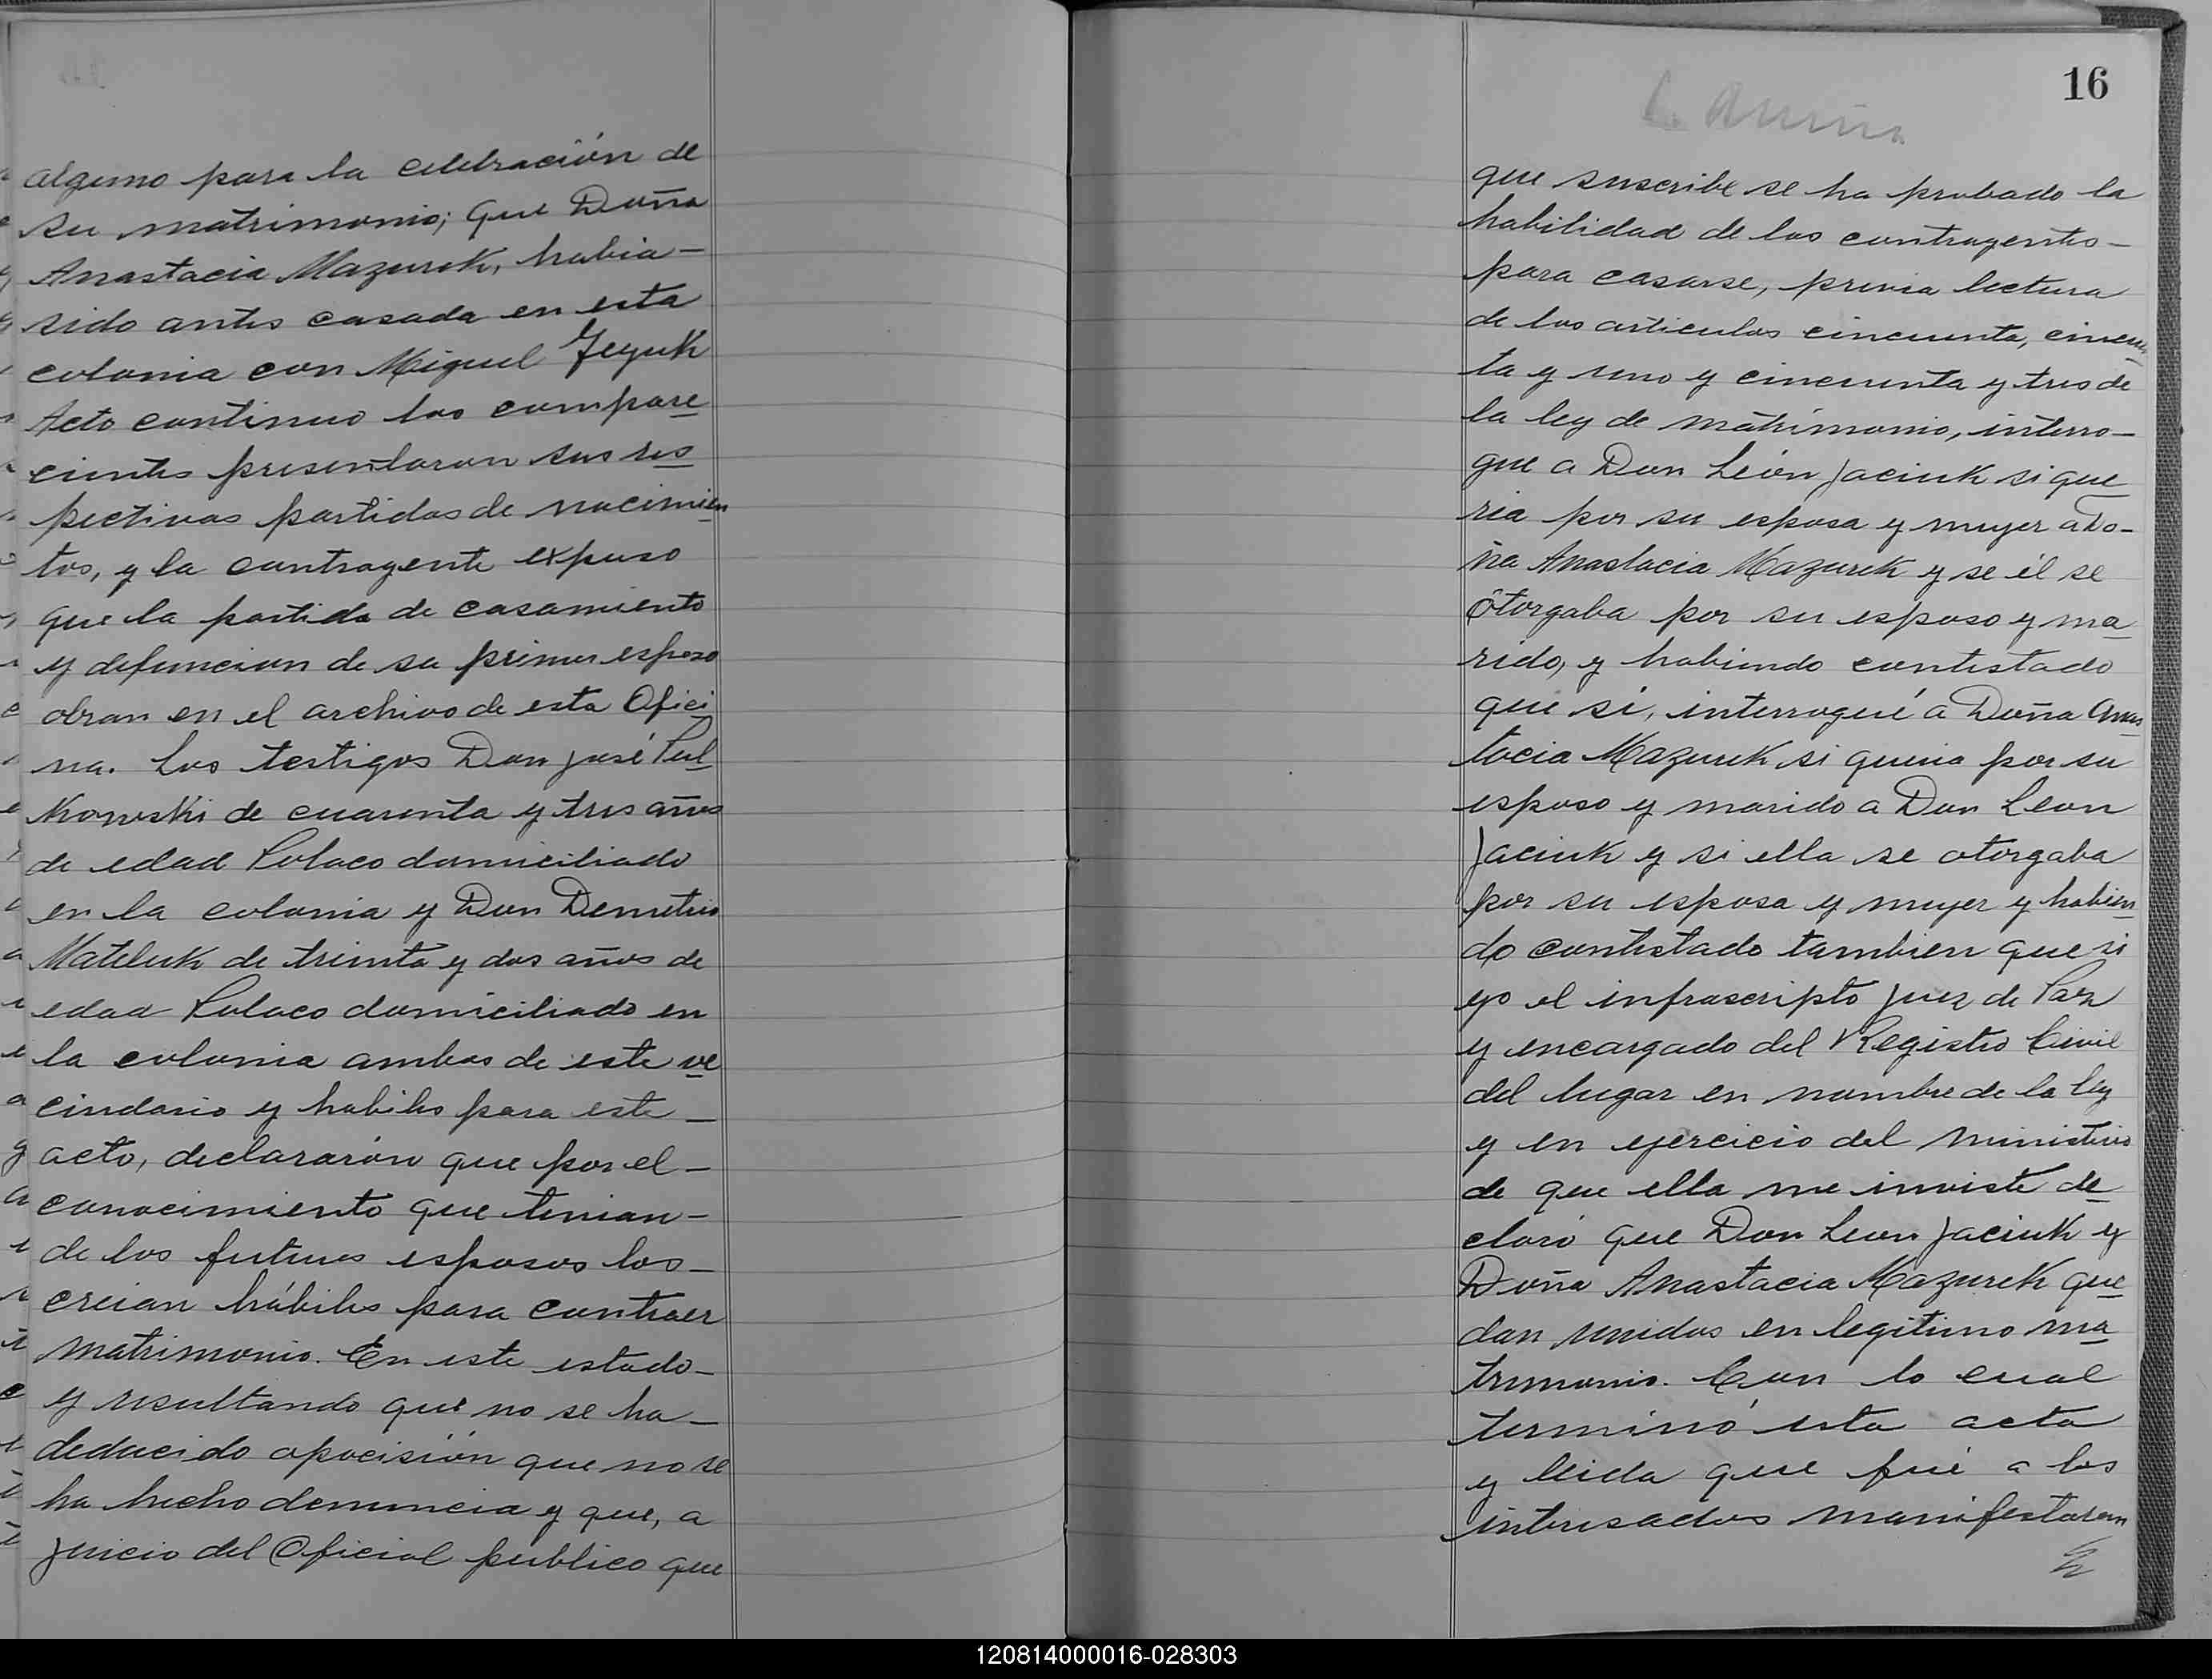 alguno para la celebración de
su matrimonio; que Doña
Anastacia Mazurek, habia-
sido antes casada en esta
colonia con Miguel
Acto continuo los compare
cientes presentaron sus res
pectivas partidas de nacimien
tos, y la contrayente expuso
que la partida de casamiento
y defuncion de su primer esposo
obran en el archivo de esta Ofici
na. Los testigos Don José Pul
kowski de cuarenta y tres años
de edad Polaco domiciliado
en la colonia y Don Demetrio
Mateluk de treinta y dos años de
edad Polaco domiciliado en
la colonia ambos de este ve
cindario y habiles para este-
acto, declararón que por el-
conocimiento que tenian-
de los futuros esposos los-
creian hábiles para contraer
matrimonio. En este estado-
y resultando que no se ha-
deducido opocisión que no se
ha hecho denuncia y que, a
juicio del Oficial publico que
16
que suscribe se ha probado la
habilidad de los contrayentes-
para casarse, previa lectura
de los articulos cincuenta, cincuen
ta y uno y cincuenta y tres de
la ley de matrimonio, interro-
gue a Don León Jaciuk si que
ria por su esposa y mujer a Do-
ña Anastacia Mazurek y se él se
otorgaba por su esposo y ma
rido, y habiendo contestado
que sí, interrogué a Doña Anas
tacia Mazurek si queria por su
esposo y marido a Don Leon
Jaciuk y si ella se otorgaba
por su esposa y mujer y habien
do contestado tambien que si
yo el infrascripto Juez de Paz
y encargado del Registro Civil
del lugar en nombre de la ley
y en ejercicio del ministerio
de que ella me inviste de
claró que Don Leon Jaciuk y
Doña Anastacia Mazurek que
dan unidos en legitimo ma
trimonio. Con lo cual
terminó esta acta
y leida que fué a los
interesados manifestaron
120814000016-028303